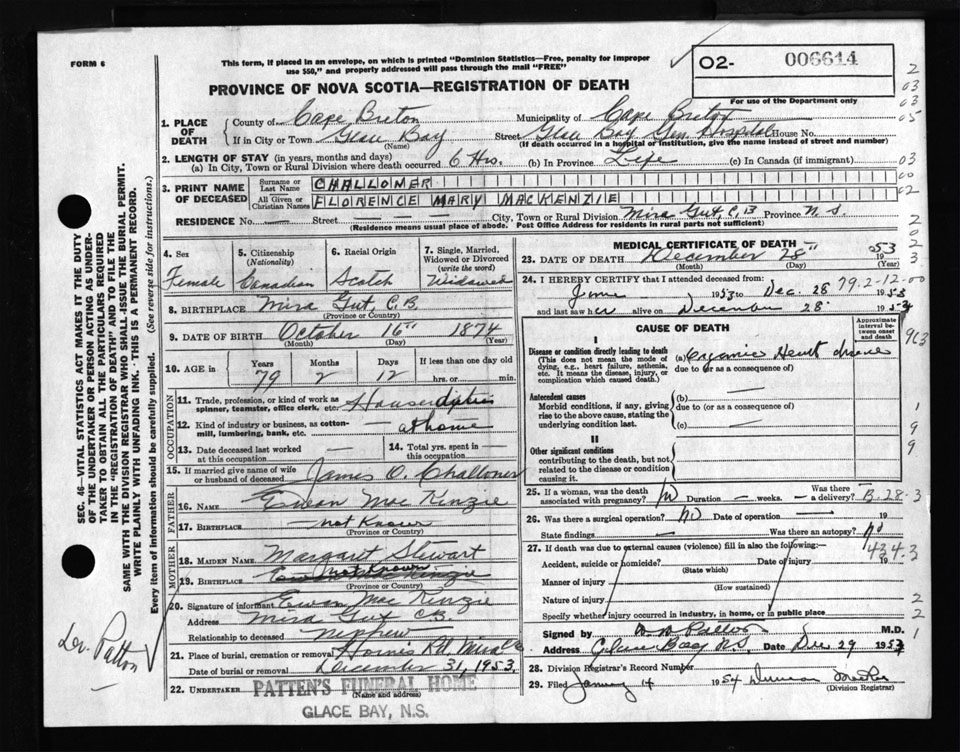 FORM 6
This form, if placed in an envelope, on which is printed "Dominion Statistics—Free, penalty for improper
use $50," and properly addressed will pass through the mail "FREE"
O2- 006614
For use of the Department only
PROVINCE OF NOVA SCOTIA—REGISTRATION OF DEATH
1. PLACE OF DEATH
County of Cape Breton Municipality of Cape Breton
If in City or Town Glace Bay Street Glace Bay Gen. Hospital House No.
(Name) (If death occurred in a hospital or institution, give the name instead of street and number)
2. LENGTH OF STAY (in years, months and days)
(a) In City, Town or Rural Division where death occurred 6 Hrs. (b) In Province Life (c) In Canada (if immigrant)
3. PRINT NAME OF DECEASED
Surname or Last Name CHALLONER
All Given or Christian Names FLORENCE MARY MACKENZIE
RESIDENCE No. — Street — — — City, Town or Rural Division Mira Gut, C.B Province N.S.
(Residence means usual place of abode. Post Office Address for residents in rural parts not sufficient)
4. Sex Female
5. Citizenship (Nationality) Canadian
6. Racial Origin Scotch
7. Single, Married, Widowed or Divorced (write the word) Widowed
8. BIRTHPLACE Mira Gut, C.B.
(Province or Country)
9. DATE OF BIRTH October 16" 1874
(Month) (Day) (Year)
10. AGE in Years 79 Months 2 Days 12 If less than one day old hrs. or min.
OCCUPATION
11. Trade, profession, or kind of work as spinner, teamster, office clerk, etc. House duties
12. Kind of industry or business, as cotton-mill, lumbering, bank, etc. at home
13. Date deceased last worked at this occupation —
14. Total yrs. spent in this occupation —
15. If married give name of wife or husband of deceased James O. Challoner
FATHER
16. NAME Ewan MacKinzie
17. BIRTHPLACE not Known
(Province or Country)
MOTHER
18. MAIDEN NAME Margaret Stewart
19. BIRTHPLACE not known
(Province or Country)
20. Signature of informant Ewan MacKinzie
Address Mira Gut CB.
Relationship to deceased Nephew
21. Place of burial, cremation or removal Hornes Rd, Mira
Date of burial or removal December 31, 1953
22. UNDERTAKER PATTEN'S FUNERAL HOME
(Name and address)
GLACE BAY, N.S.
MEDICAL CERTIFICATE OF DEATH
23. DATE OF DEATH December 28" 1953
(Month) (Day) (Year)
24. I HEREBY CERTIFY that I attended deceased from:
June 1953 to Dec. 28 1953
79.2-12-00
and last saw her alive on December 28 1953
CAUSE OF DEATH
Approximate interval between onset and death
I
Disease or condition directly leading to death
(This does not mean the mode of dying, e.g., heart failure, asthenia, etc. It means the disease, injury, or complication which caused death.)
(a) Organic Heart disease
due to (or as a consequence of)
Antecedent causes
Morbid conditions, if any, giving rise to the above cause, stating the underlying condition last.
(b)
due to (or as a consequence of)
(c) —
II
Other significant conditions
contributing to the death, but not related to the disease or condition causing it.
25. If a woman, was the death associated with pregnancy? No Duration — weeks. — Was there a delivery?
B.28-3
26. Was there a surgical operation? No Date of operation — 19
State findings — Was there an autopsy? No
27. If death was due to external causes (violence) fill in also the following:—
434.3
Accident, suicide or homicide? Date of injury 19
(State which)
Manner of injury
(How sustained)
Nature of injury
Specify whether injury occurred in industry, in home, or in public place
Signed by Patton M.D.
Address Glace Bay N.S. Date Dec 29 1953
28. Division Registrar's Record Number
29. Filed January 14 1954 Duncan
(Division Registrar)
SEC. 46—VITAL STATISTICS ACT MAKES IT THE DUTY
OF THE UNDERTAKER OR PERSON ACTING AS UNDER-
TAKER TO OBTAIN ALL THE PARTICULARS REQUIRED
IN THE "REGISTRATION OF DEATH" AND TO FILE THE
SAME WITH THE DIVISION REGISTRAR WHO SHALL ISSUE THE BURIAL PERMIT.
WRITE PLAINLY WITH UNFADING INK. - THIS IS A PERMANENT RECORD.
Every item of information should be carefully supplied. (See reverse side for instructions.)
Dr. Patton
2
03
03
05
03
00
02
2
02
2
3
963
1
9
9
2
2
1